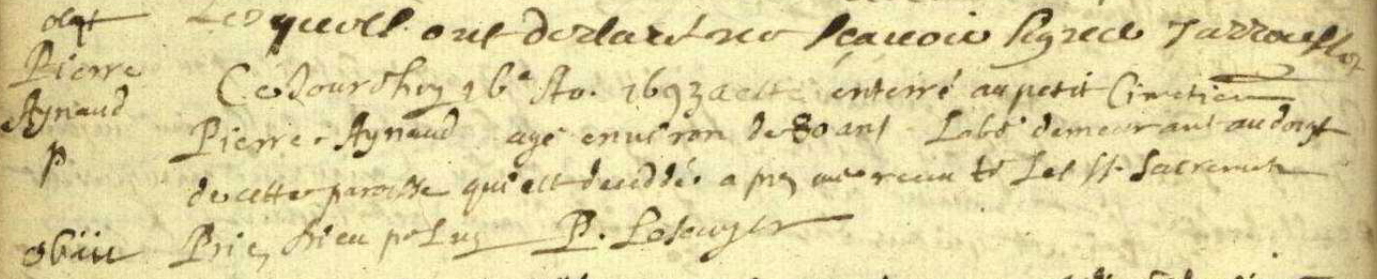 Lesquels ont declaré ne sçauoir signer
Pierre
Aynaud
Ce Jourdhuy 16e 1693 a esté enterré au petit Cimetiere
Pierre Aynaud agé enuiron de 80 ans Labr demeurant au
p
de cette paroisse qui est decedé apres auoir receu ts Les SS. Sacremens
obiit Priez Dieu pr Luy P.